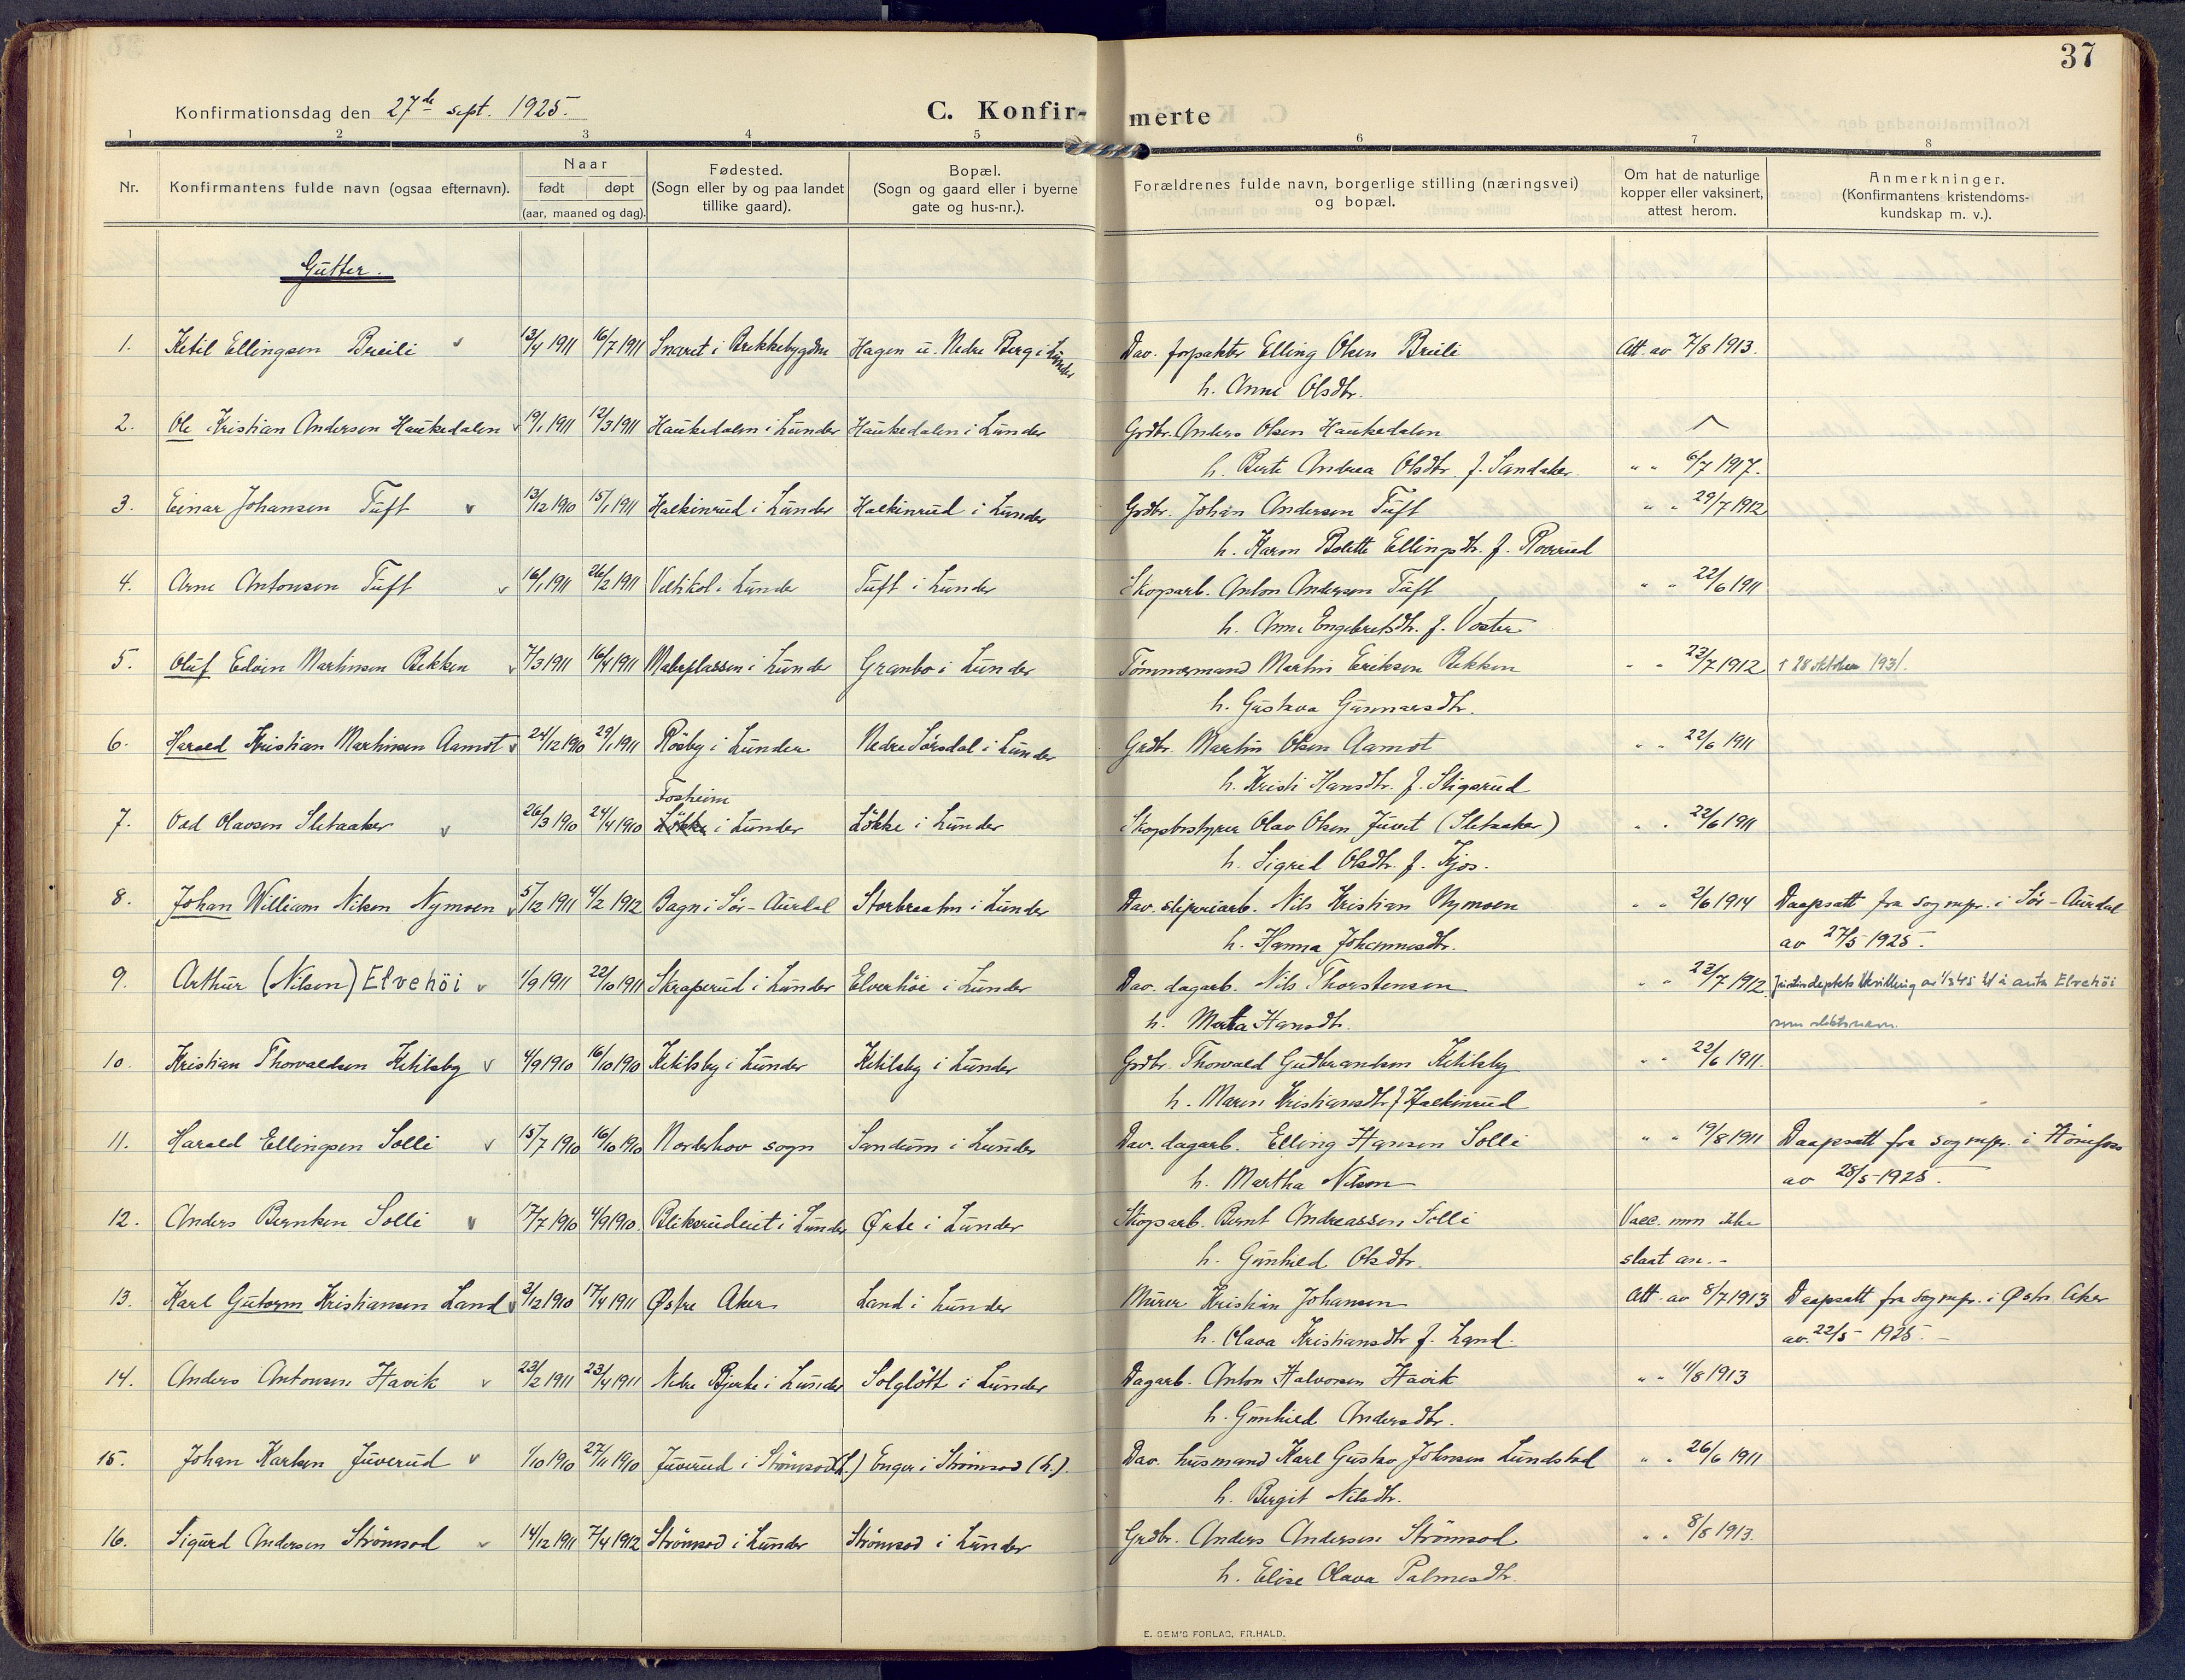 37
Konfirmationsdag den 27de sept. 1925.
C. Konfir- merte
1 2 3 4 5 6 7 8
Nr.
Konfirmantens fulde navn (ogsaa efternavn).
Naar
født døpt
(aar, maaned og dag).
Fødested.
(Sogn eller by og paa landet
tillike gaard).
Bopæl.
(Sogn og gaard eller i byerne
gate og hus-nr.).
Forældrenes fulde navn, borgerlige stilling (næringsvei)
og bopæl.
Om hat de naturlige
kopper eller vaksinert,
attest herom.
Anmerkninger.
(Konfirmantens kristendoms-
kundskap m. v.).
Gutter.
1. Ketil Ellingsen Breili v 13/4 1911 16/7 1911 Snaret i Brekkebygden Hagen u. Nedre Berg i Lunder Dav. forpakter Elling Olsen Breili Att. av 7/8 1913.
h. Anne Olsdtr.
2. Ole Kristian Andersen Haukedalen v 19/1 1911 12/3 1911 Haukedalen i Lunder Haukedalen i Lunder Grdbr. Anders Olsen Haukedalen
h. Berte Andrea Olsdtr. f. Sandaker. " " 6/7 1917.
3. Einar Johansen Tuft v 13/12 1910 15/1 1911 Halkinrud i Lunder Halkinrud i Lunder Grdbr. Johan Andersen Tuft " " 29/7 1912
h. Karen Bolette Ellingsdtr. f.
4. Arne Antonsen Tuft v 16/1 1911 26/2 1911 Veltikol i Lunder Tuft i Lunder Skogsarb. Anton Andersen Tuft " " 22/6 1911
h. Anne Engebretsdtr. f.
5. Oluf Edvin Martinsen Bekken v 7/3 1911 16/4 1911 i Lunder Granbo i Lunder Tømmermand Martin Eriksen Bekken " " 23/7 1912 † 28 oktober 1931.
h. Gustava Gunnarsdtr.
6. Harald Kristian Martinsen Aamot v 24/12 1910 29/1 1911 Røsby i Lunder Nedre Sørsdal i Lunder Grdbr. Martin Olsen Aamot " " 22/6 1911
h. Kristi Hansdtr. f. Stigsrud
Fosheim
7. Odd Olavsen Sletaaker v 26/3 1910 24/4 1910 Løkke i Lunder Løkke i Lunder Skogbestyrer Olav Olsen Juvet (Sletaaker) " " 22/6 1911
h. Sigrid Olsdtr. f. Kjos.
8. Johan William Nilsen Nymoen v 5/12 1911 4/2 1912 Bagn i Sør-Aurdal Storbraaten i Lunder Dav. sliperiarb. Nils Kristian Nymoen " " 2/6 1914 Daapsatt fra sognepr. i Sør-Aurdal
h. Hanna Johannesdtr. av 27/5 1925.
9. Arthur (Nilsen) Elvehöi v 1/9 1911 22/10 1911 Skraperud i Lunder Elverhöi i Lunder Dav. dagarb. Nils Thorstensen " " 23/7 1912 Justisdeptets bevilling av 1/3 45 til å anta Elvehöi
h. Marta Hansdtr. som slektsnavn.
10. Kristian Thorvaldsen Ketilsby v 4/9 1910 16/10 1910 Ketilsby i Lunder Ketilsby i Lunder Grdbr. Thorvald Gudbrandsen Ketilsby " " 22/6 1911.
h. Maren Kristiansdtr. f. Halkinrud
11. Harald Ellingsen Solli v 15/7 1910 16/10 1910 Norderhov sogn Sandum i Lunder Dav. dagarb. Elling Hansen Solli " " 19/8 1911 Daapsatt fra sognepr. i Hönefoss
h. Martha Nilsen av 28/5 1925.
12. Anders Berntsen Solli v 17/7 1910 4/9 1910. i Lunder Ørte i Lunder Skogsarb. Bernt Andreassen Solli Vacc. men ikke
h. Gunhild Olsdtr. slaat an. -
13. Karl Gutorm Kristiansen Land v 2/12 1910 17/4 1911 Østre Aker Land i Lunder Murer Kristian Johansen Att. av 8/7 1913 Daapsatt fra sognepr. i Østre Aker
h. Olava Kristiansdtr f. Land. av. 22/5 1925. -
14. Anders Antonsen Havik v 23/2 1911 23/4 1911 Nedre Bjerke i Lunder Solglött i Lunder Dagarb. Anton Halvorsen Havik " " 11/8 1913
h. Gunhild Andersdtr.
15. Johan Karlsen Juverud v 1/10 1910 27/11 1910 Juverud i Strömsod (L.) Enger i Strömsod (L.). Dav. husmand Karl Gustav Johnsen Lundstad " " 26/6 1911
h. Birgit Nilsdtr.
16. Sigurd Andersen Strömsod v 14/12 1911 7/4 1912 Strömsod i Lunder Strömsod i Lunder Grdbr. Anders Andersen Strömsod " " 8/8 1913.
h. Elise Olava Palmesdtr.
E. SEM'S FORLAG, FR.HALD.